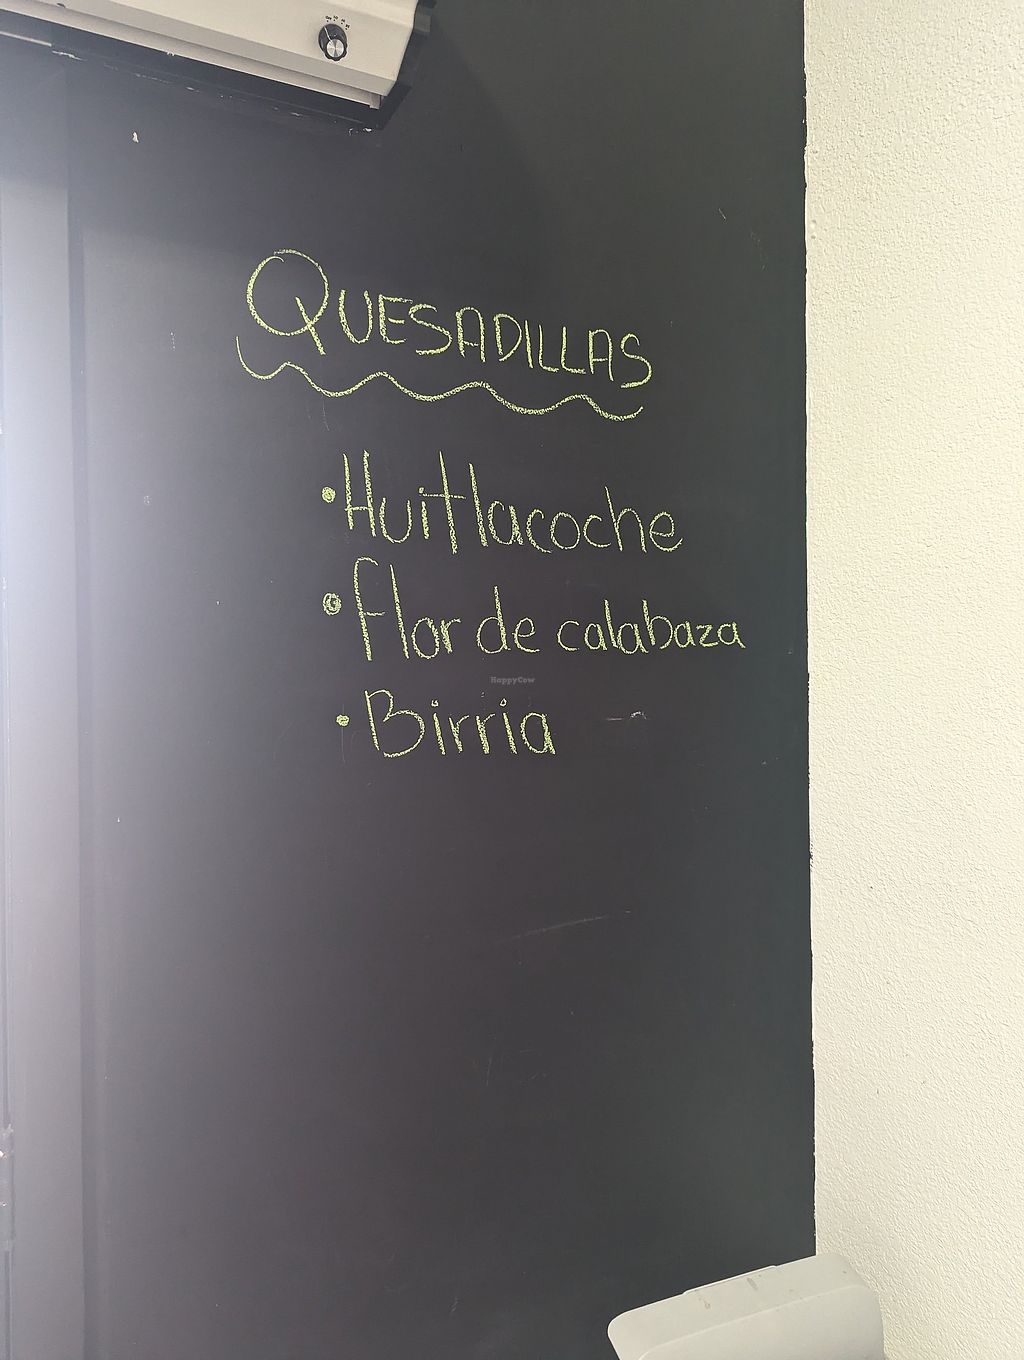 QUESADILLAS
• Huitlacoche
• flor de calabaza
HappyCow
• Birria